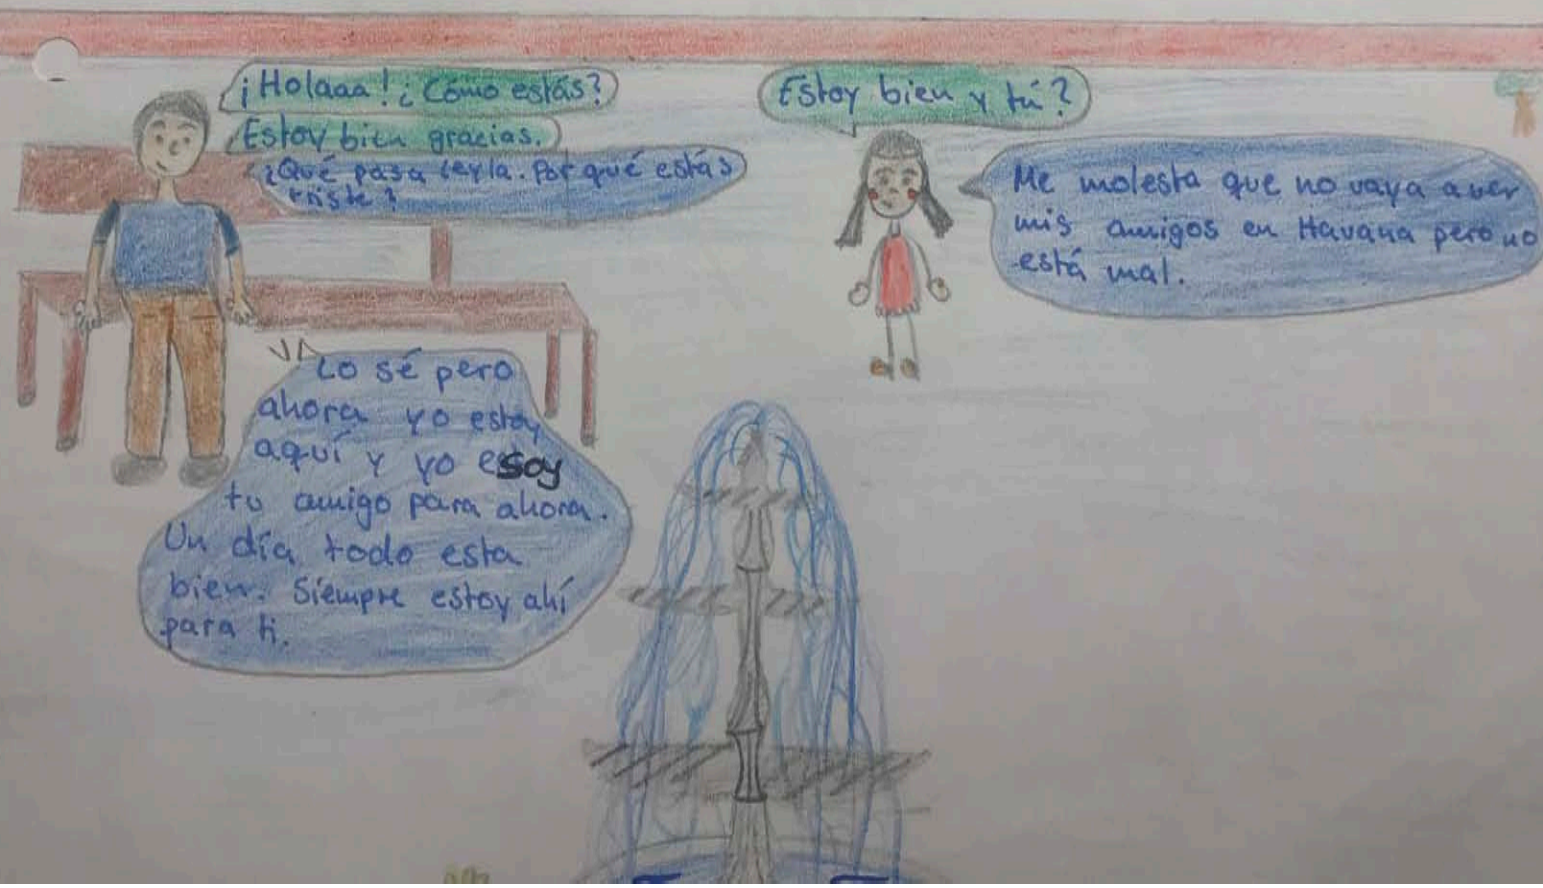 ¡Holaaa! ¿Cómo estás?
Estoy bien y tú?
Estoy bien gracias.
¿Qué pasa leyla. Por qué estás
triste?
Me molesta que no vaya a ver
mis amigos en Havana pero no
está mal.
Lo sé pero
ahora yo estoy
aquí y yo esoy
tu amigo para ahora.
Un día todo esta
bien. Siempre estoy ahí
para ti.